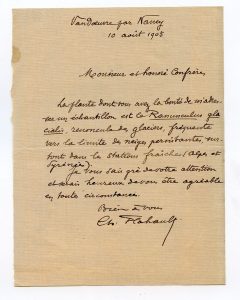 Vandœuvre par Nancy
10 août 1908
Monsieur et honoré Confrère,
La plante dont vous avez la bonté de m'adres
ser un échantillon est le Ranunculus gla
cialis, renoncule des glaciers, fréquente
vers la limite des neiges persistantes, sur
tout dans les stations fraîches (Alpes et
Pyrénées).
Je vous sais gré de votre attention
et serais heureux de vous être agréable
en toute circonstance.
Bien à vous
Ch. Flahault